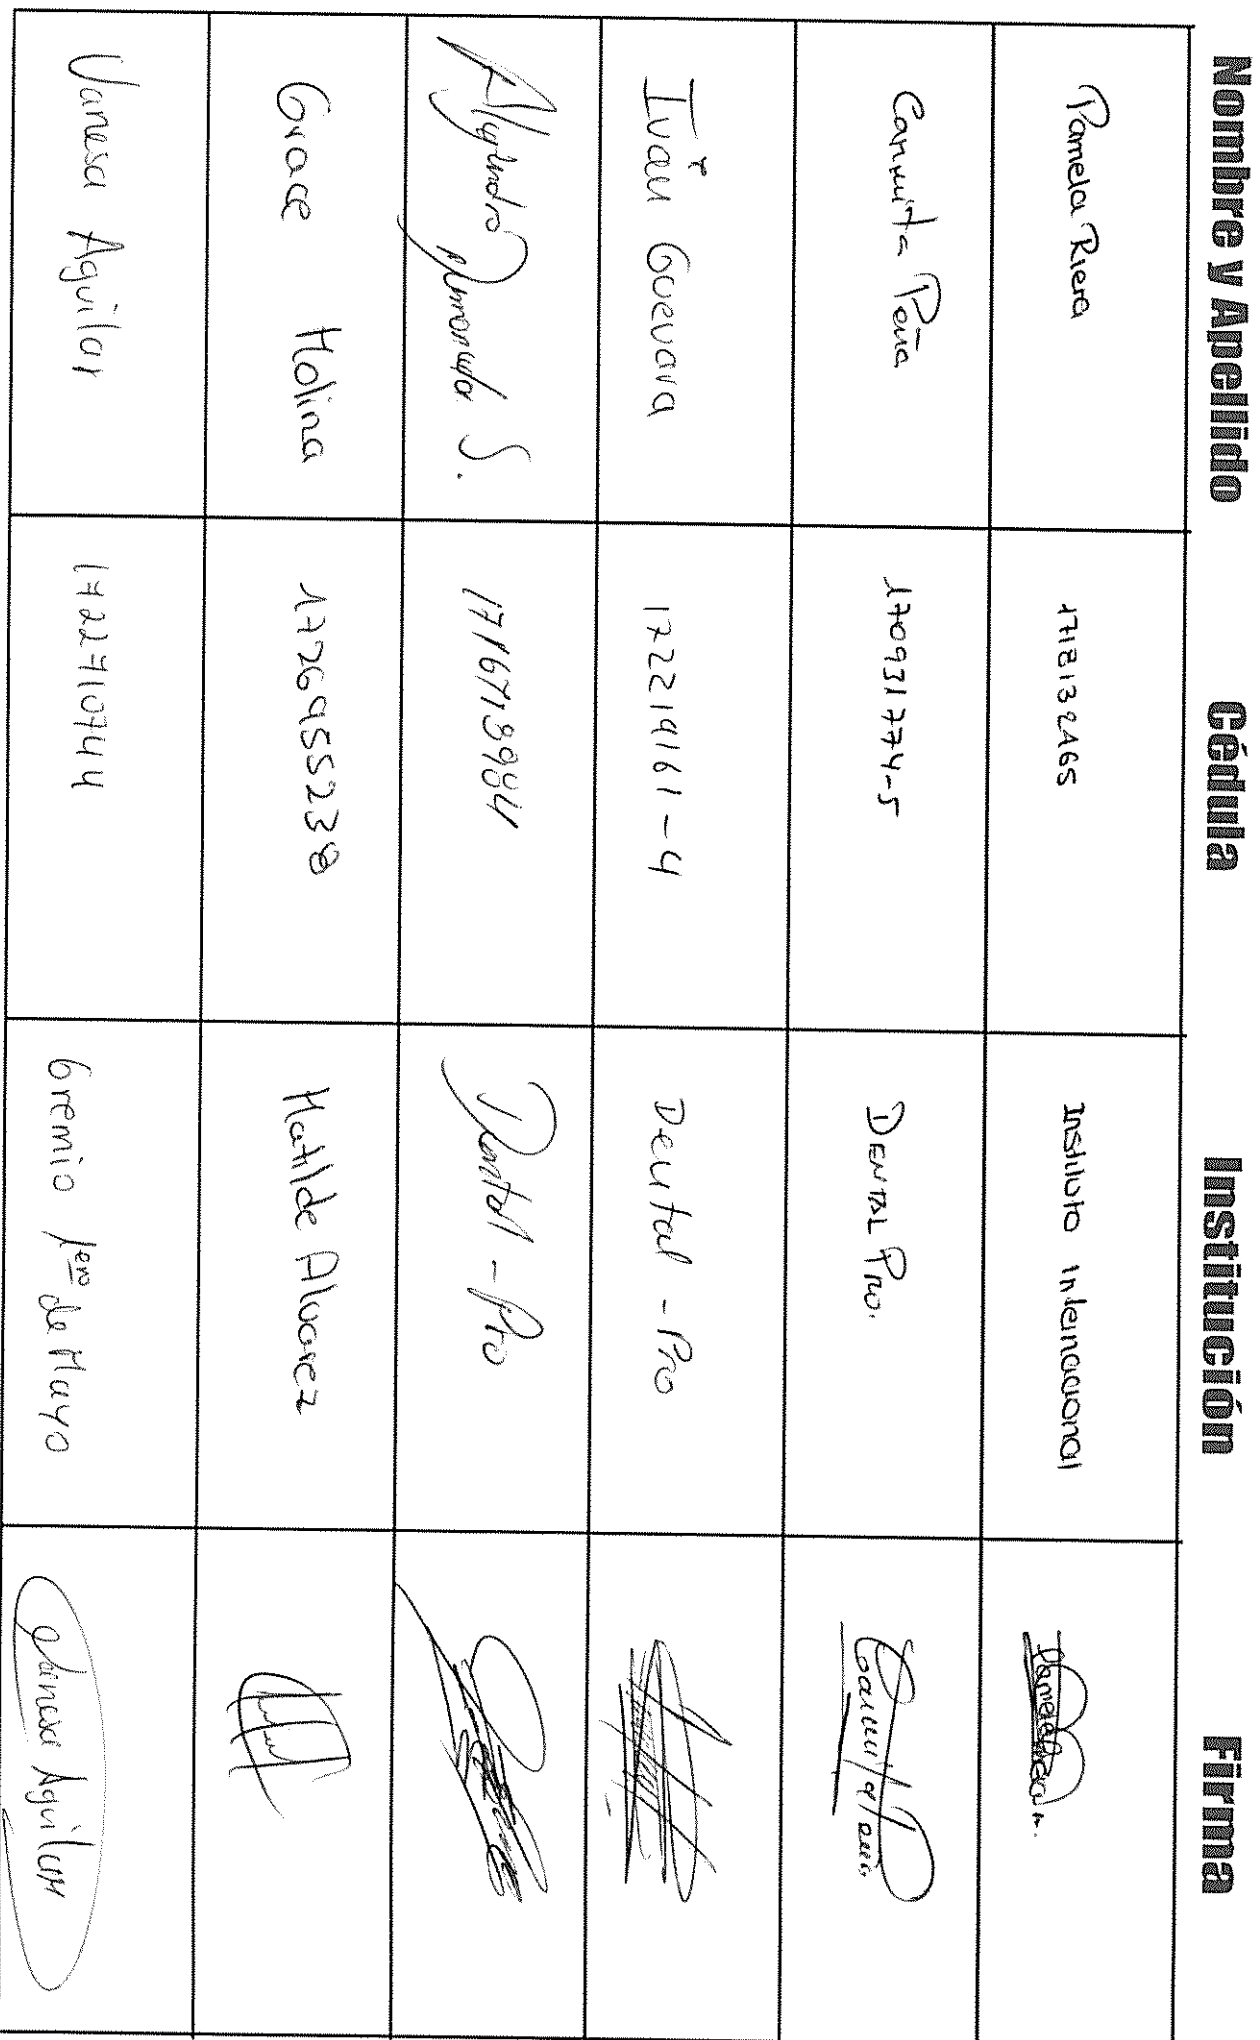 Nombre y Apellido Cédula Institución Firma
Pamela Riera 1718132465 Instituto Internacional
Carmita Peña 170931774-5 DENTAL Pro.
Iván Guevara 172219161-4 Dental - Pro
Alejandro S. 1716718984 Dental - Pro
Grace Molina 1726955238 Matilde Alvarez
Vanesa Aguilar 1722710744 Gremio 1ero de Mayo Vanesa Aguilar